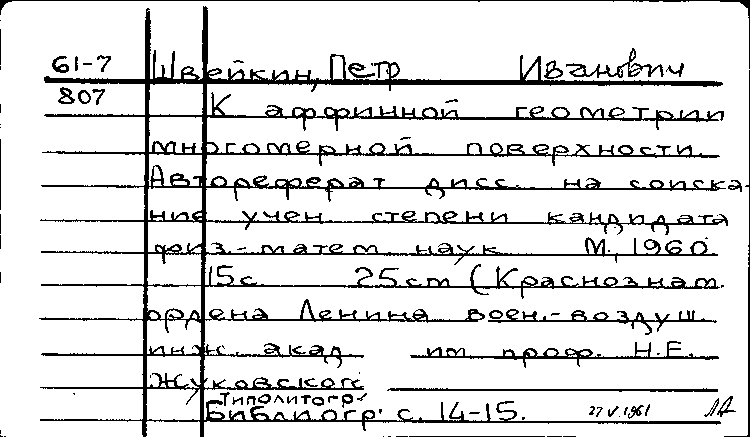 61-7 Швейкин, Петр Иванович
807 К аффинной геометрии
многомерной поверхности.
Автореферат дисс. на соиска-
ние учен. степени кандидата
физ.-матем. наук М., 1960.
15 с. 25 cm (Краснознам.
ордена Ленина воен.-воздуш.
инж. акад им проф. Н.Е.
Жуковского
Типолитогр.
Библиогр: с. 14-15. 27 V 1961